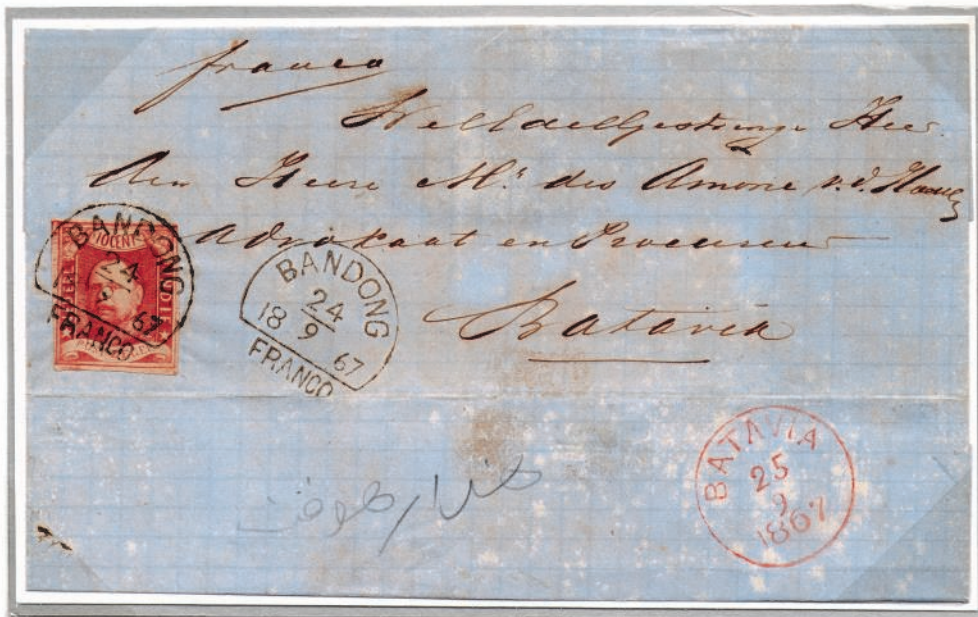 franco
WelEdelGestrenge Heer
Den Heere Mr. des Amorie v.d.
Advokaat en Procureur
Batavia
BANDONG
24
9
18 67
FRANCO
10 CENT
BANDONG
24
9
18 67
FRANCO
BATAVIA
25
9
1867